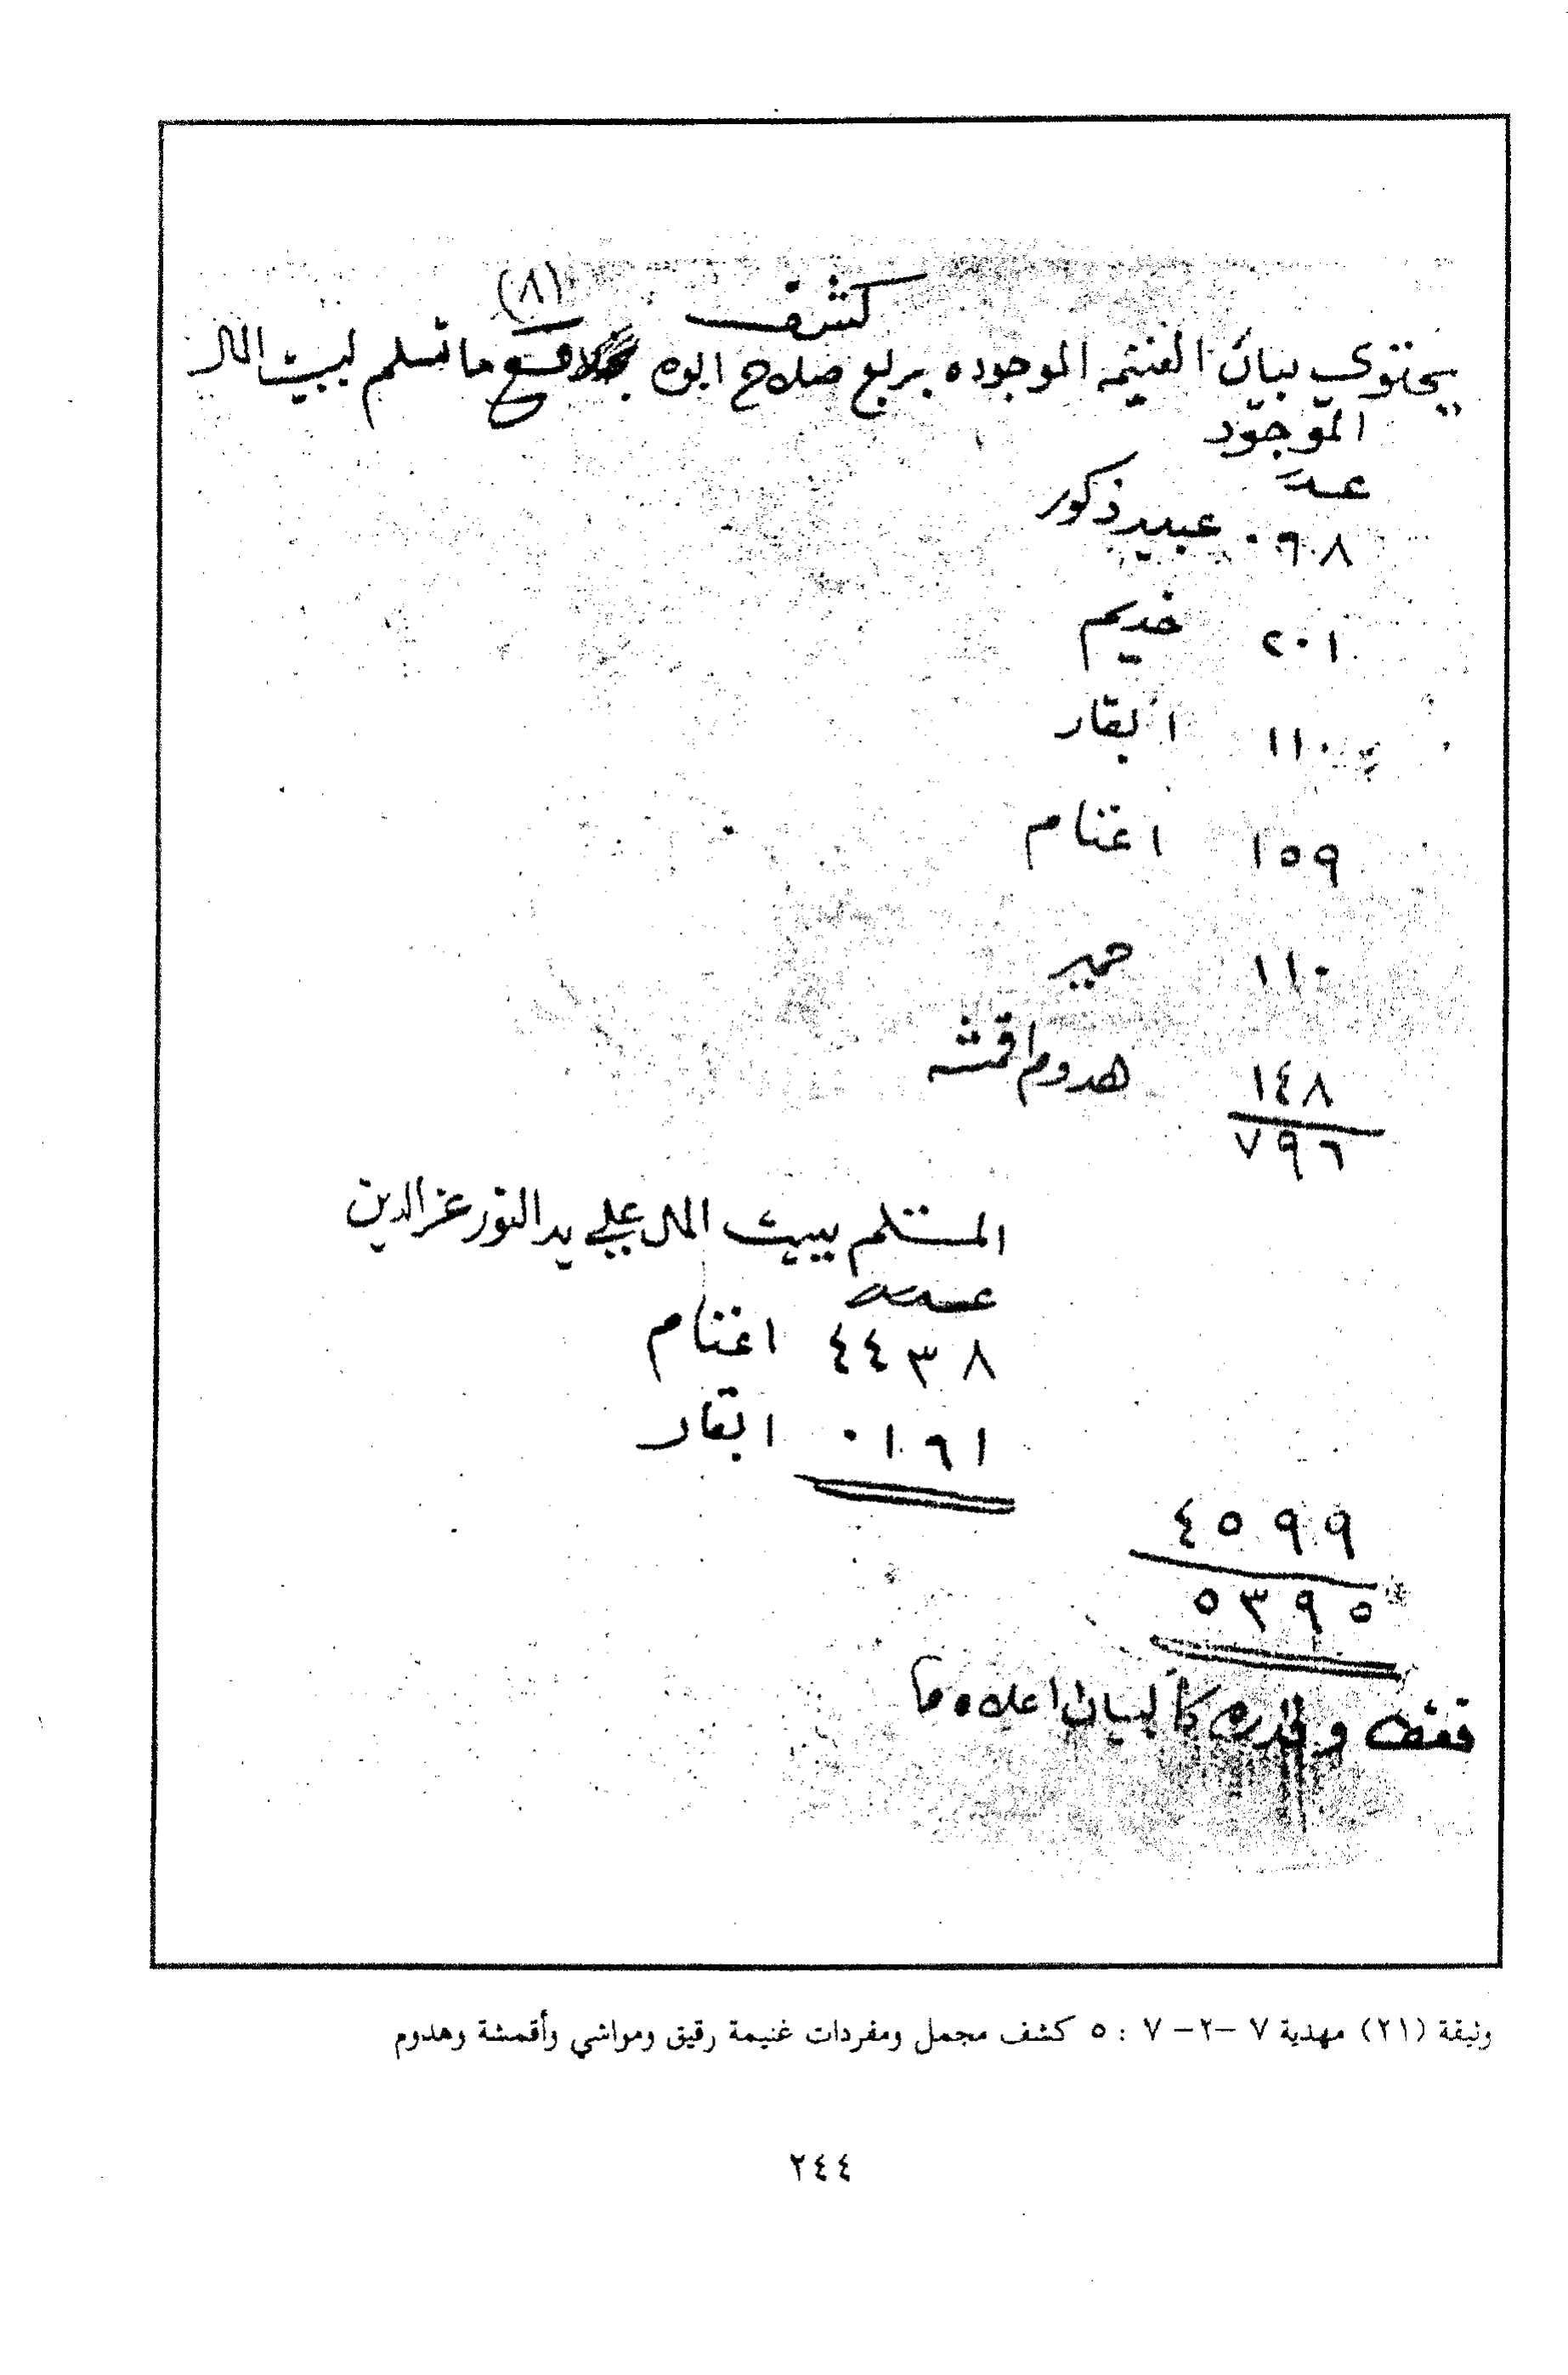 كشف
(٨)
يحتوي بيان الغنيمه الموجوده بربع صلاح ابوه مع ما تسلم لبيت المال
الموجود
عدد
٠٦٨ عبيد ذكور
٢٠١ خديم
١١٠ ابقار
١٥٩ اغنام
١١٠ حمير
١٤٨ هدوم اقمشه
٧٩٦
المستلم ببيت المال علي يد النور عز الدين
عدد
٤٤٣٨ اغنام
٠١٦١ ابقار
٤٥٩٩
٥٣٩٥
فقط وقدره كالبيان اعلاه
وثيقة (٢١) مهدية ٧ –٢– ٧ : ٥ كشف مجمل ومفردات غنيمة رقيق ومواشي وأقمشة وهدوم
٢٤٤